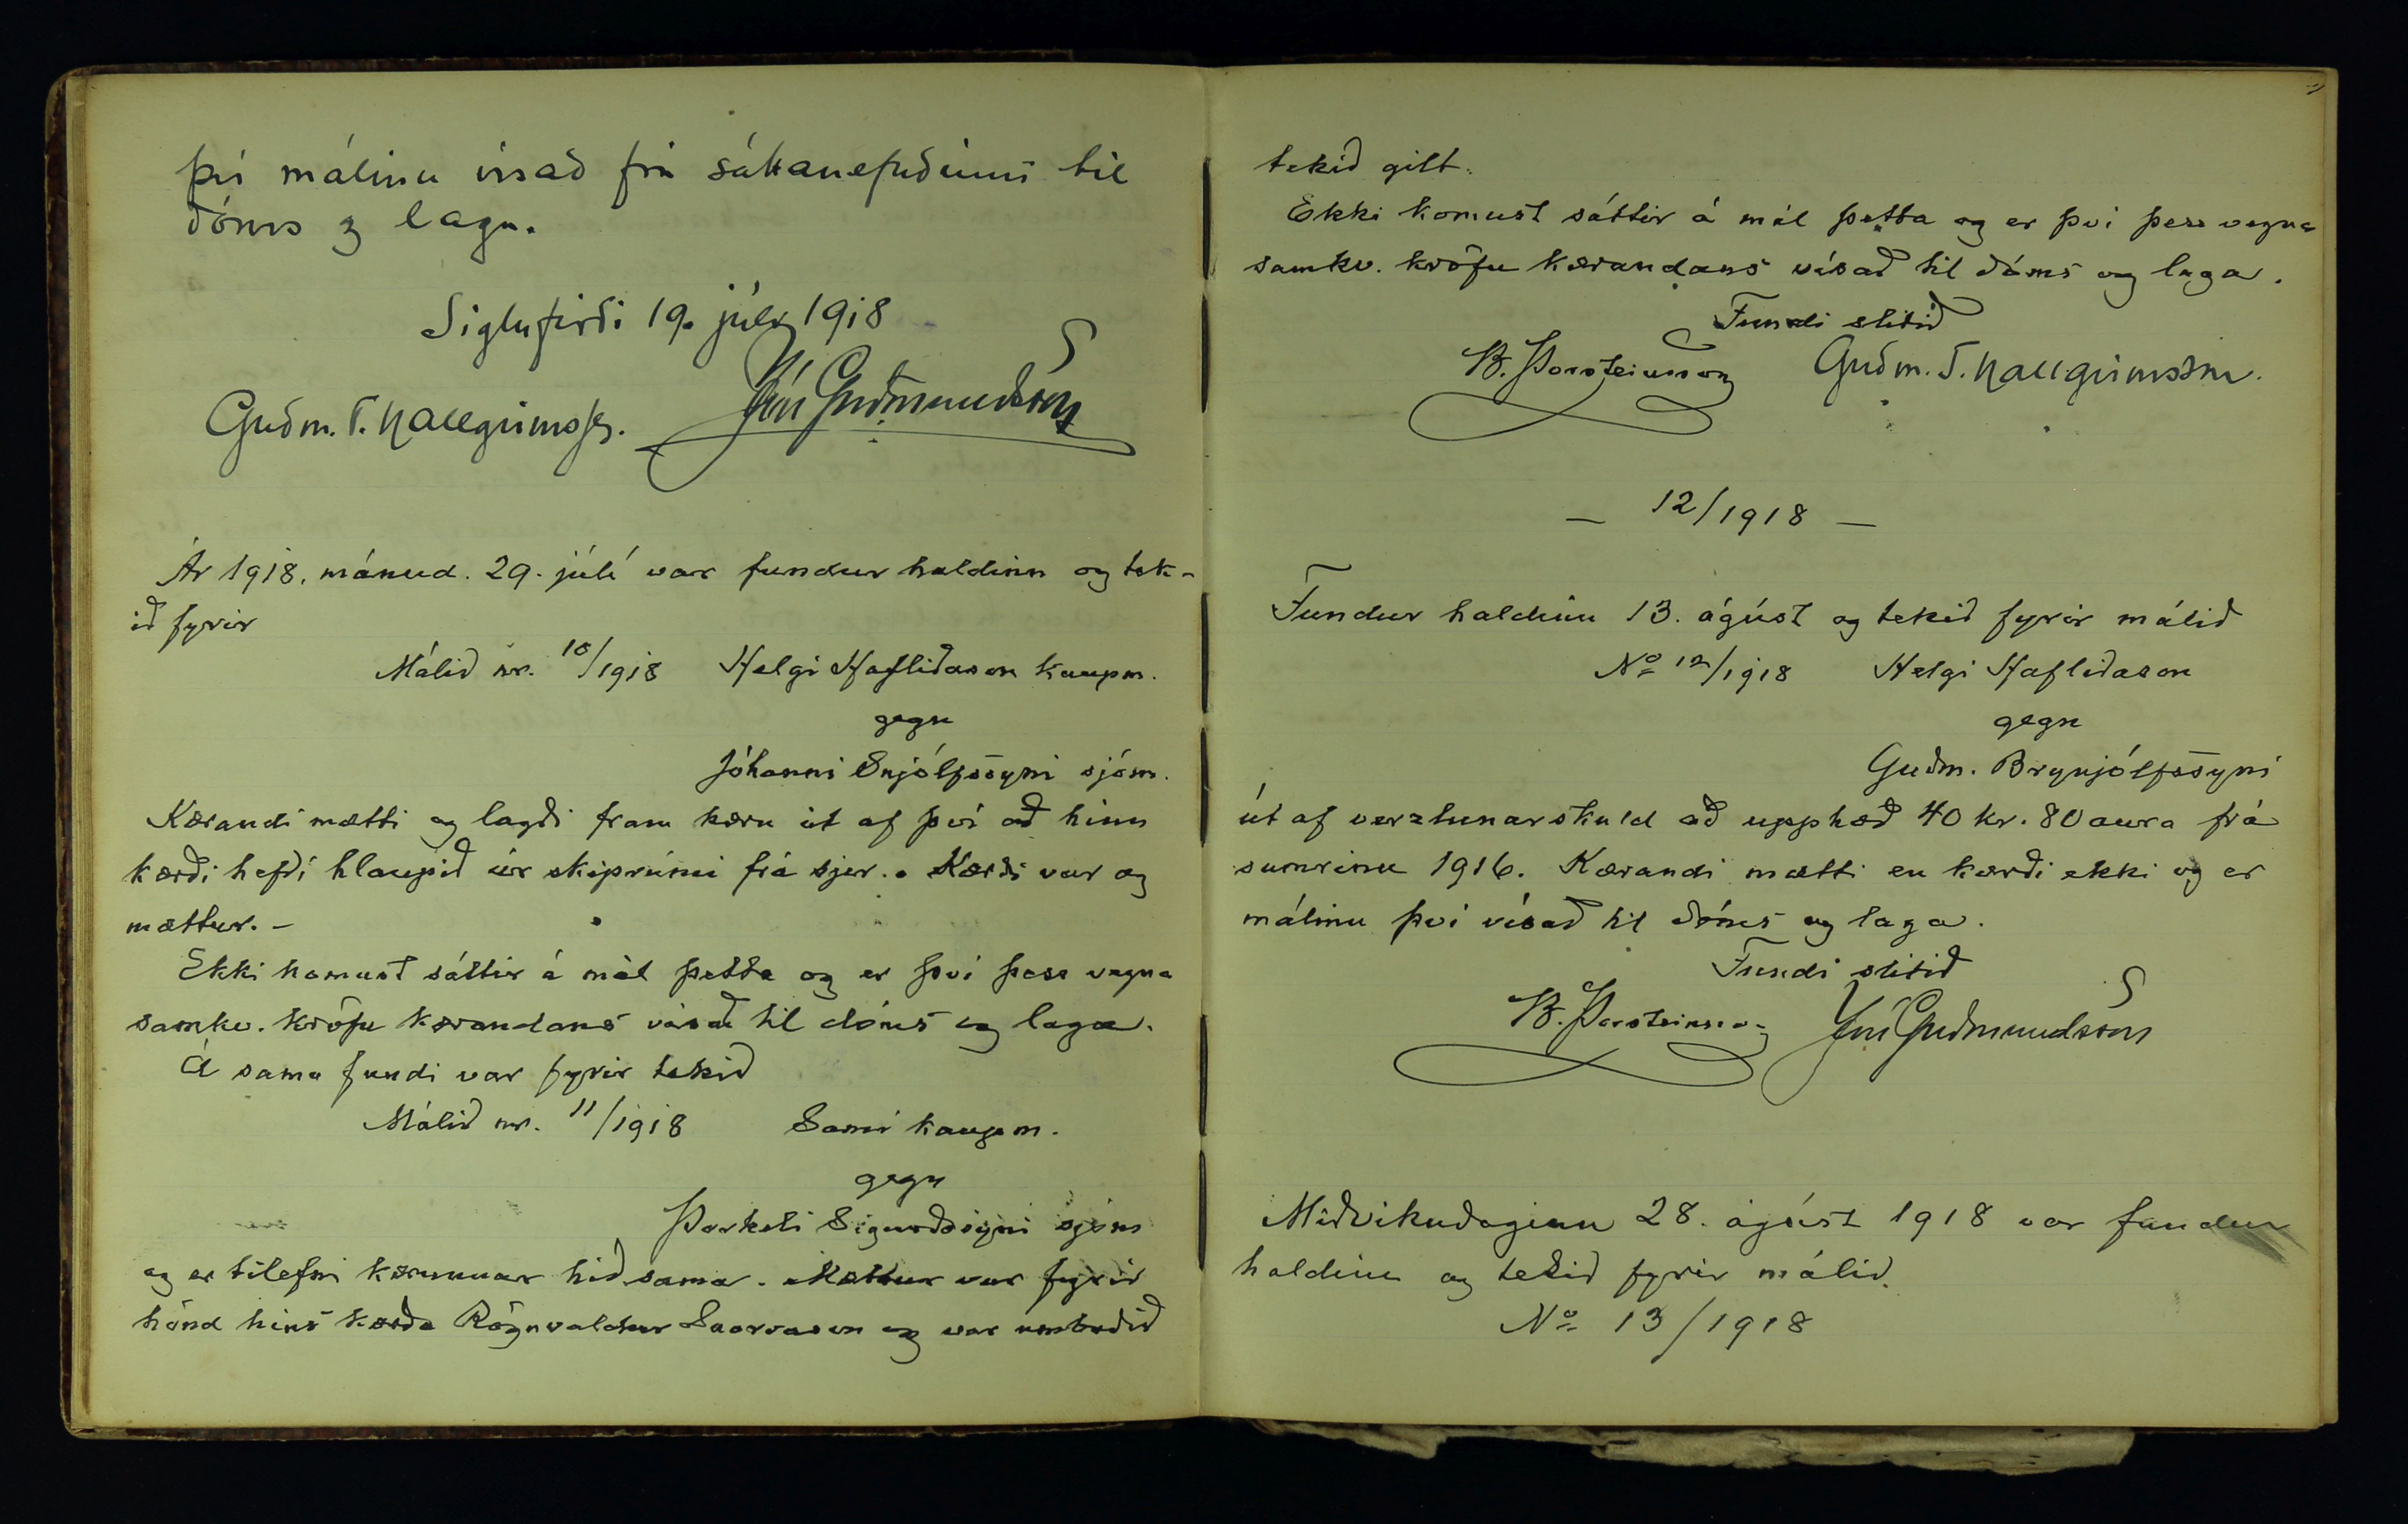 því málinu vísað frá sáttanefndinni til
dóms og laga.
Siglufirði 19. júlí 1918
Guðm. T. Hallgrímsson. Jón Guðmundsson
Ár 1918, mánud. 29. júlí var fundur haldinn og tek-
ið fyrir
Málið nr. 10/1918 Helgi Hafliðason kaupm.
gegn
Jóhanni Snjólfssyni sjóm.
Kærandi mætti og lagði fram kæru út af því að hinn
kærði hefði hlaupið úr skiprúmi frá sjer. Kærði var og
mættur. -
Ekki komust sáttir á mál þetta og er því þess vegna
samkv. kröfu kærandans vísað til dóms og laga.
Á sama fundi var fyrir tekið
Málið nr. 11/1918 Sami kaupm.
gegn
Þorkeli Sigurðssyni sjóm
og er tilefni kærunnar hið sama. Mættur var fyrir
hönd hins kærða Rögnvaldur og var umboðið
tekið gilt.
Ekki komust sáttir á mál þetta og er því þess vegna
samkv. kröfu kærandans vísað til dóms og laga.
Fundi slitið
B. Þorsteinsson Guðm. T. Hallgrímsson.
- 12/1918 -
Fundur haldinn 13. ágúst og tekið fyrir málið
No 12/1918 Helgi Hafliðason
gegn
Guðm. Brynjólfssyni
út af verzlunarskuld að upphæð 40 kr. 80 aura frá
sumrinu 1916. Kærandi mætti en kærði ekki og er
málinu því vísað til dóms og laga.
Fundi slitið
B. Þorsteinsson Jón Guðmundsson
Miðvikudaginn 28. ágúst 1918 var fundur
haldinn og tekið fyrir málið
No 13/1918